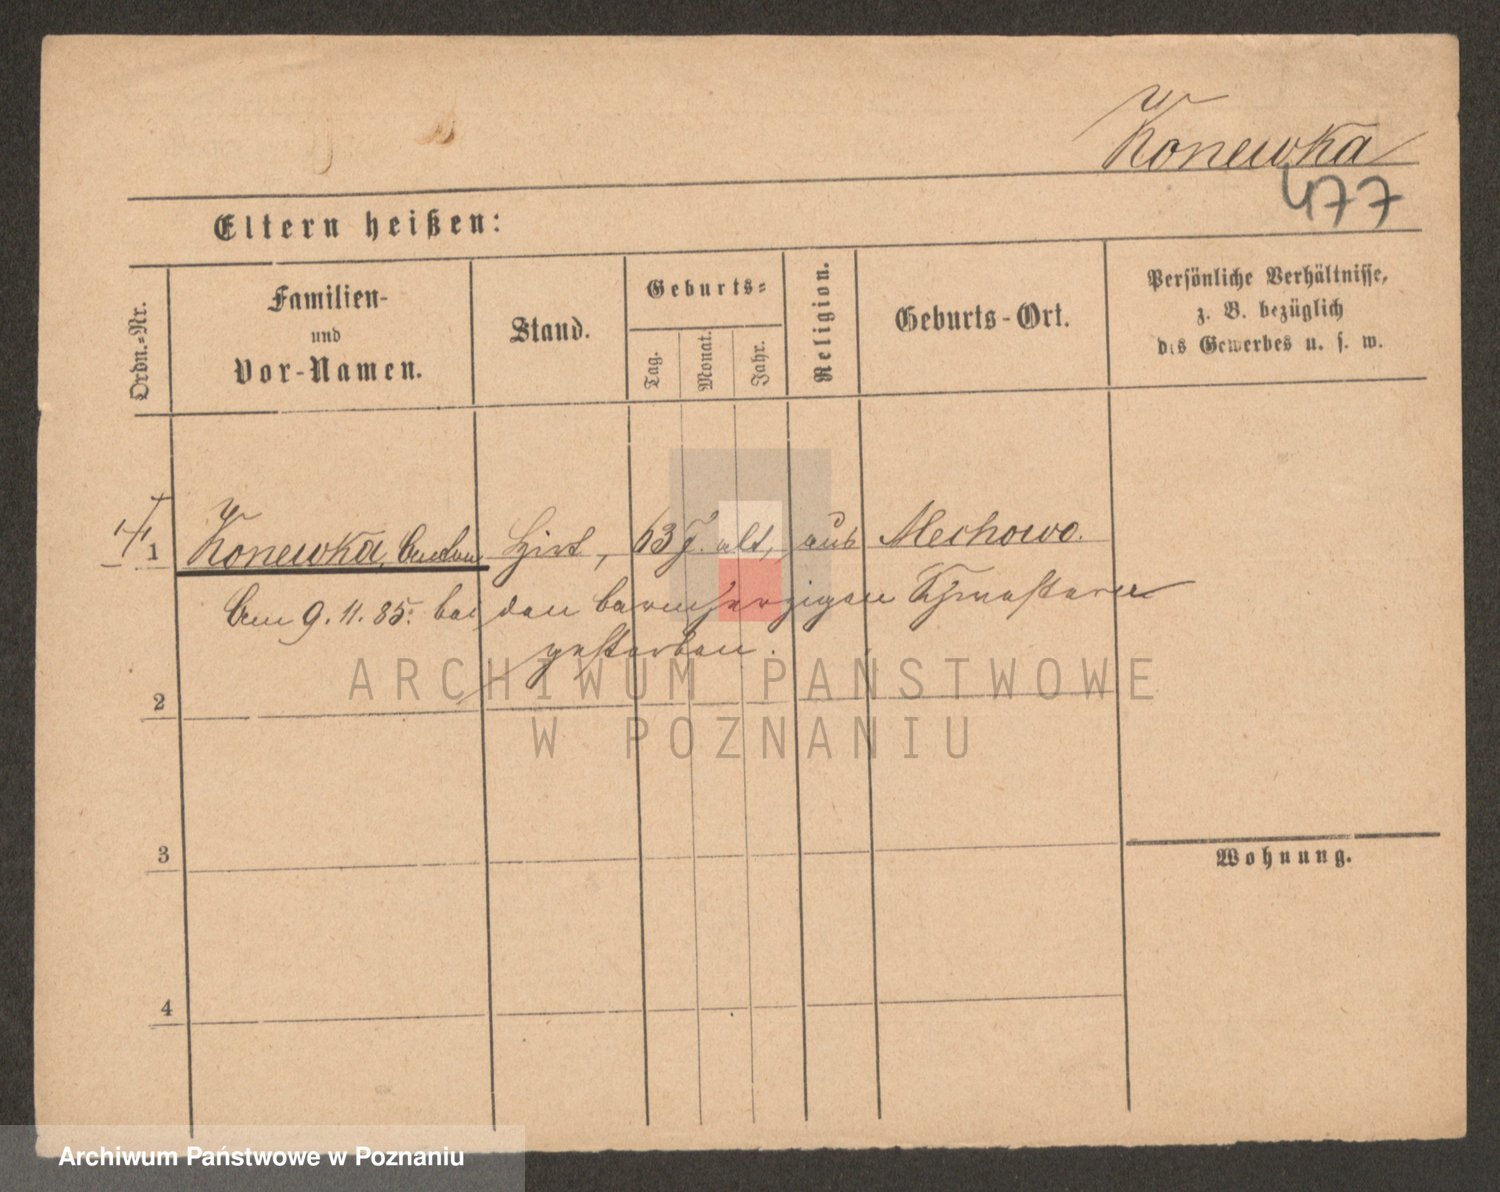 Konewka
477
Eltern heißen:
Ordn.-Nr.
Familien-
und
Vor-Namen.
Stand.
Geburts-
Tag.
Monat.
Jahr.
Religion.
Geburts-Ort.
Persönliche Verhältnisse,
z. B. bezüglich
des Gewerbes u. s. w.
1 Konewka, Anton Hirt, 63 J. alt, aus Mechowo.
Am 9.11.85. bei den barmherzigen Schwestern
gestorben.
ARCHIWUM PAŃSTWOWE
W POZNANIU
2
3
Wohnung.
4
Archiwum Państwowe w Poznaniu